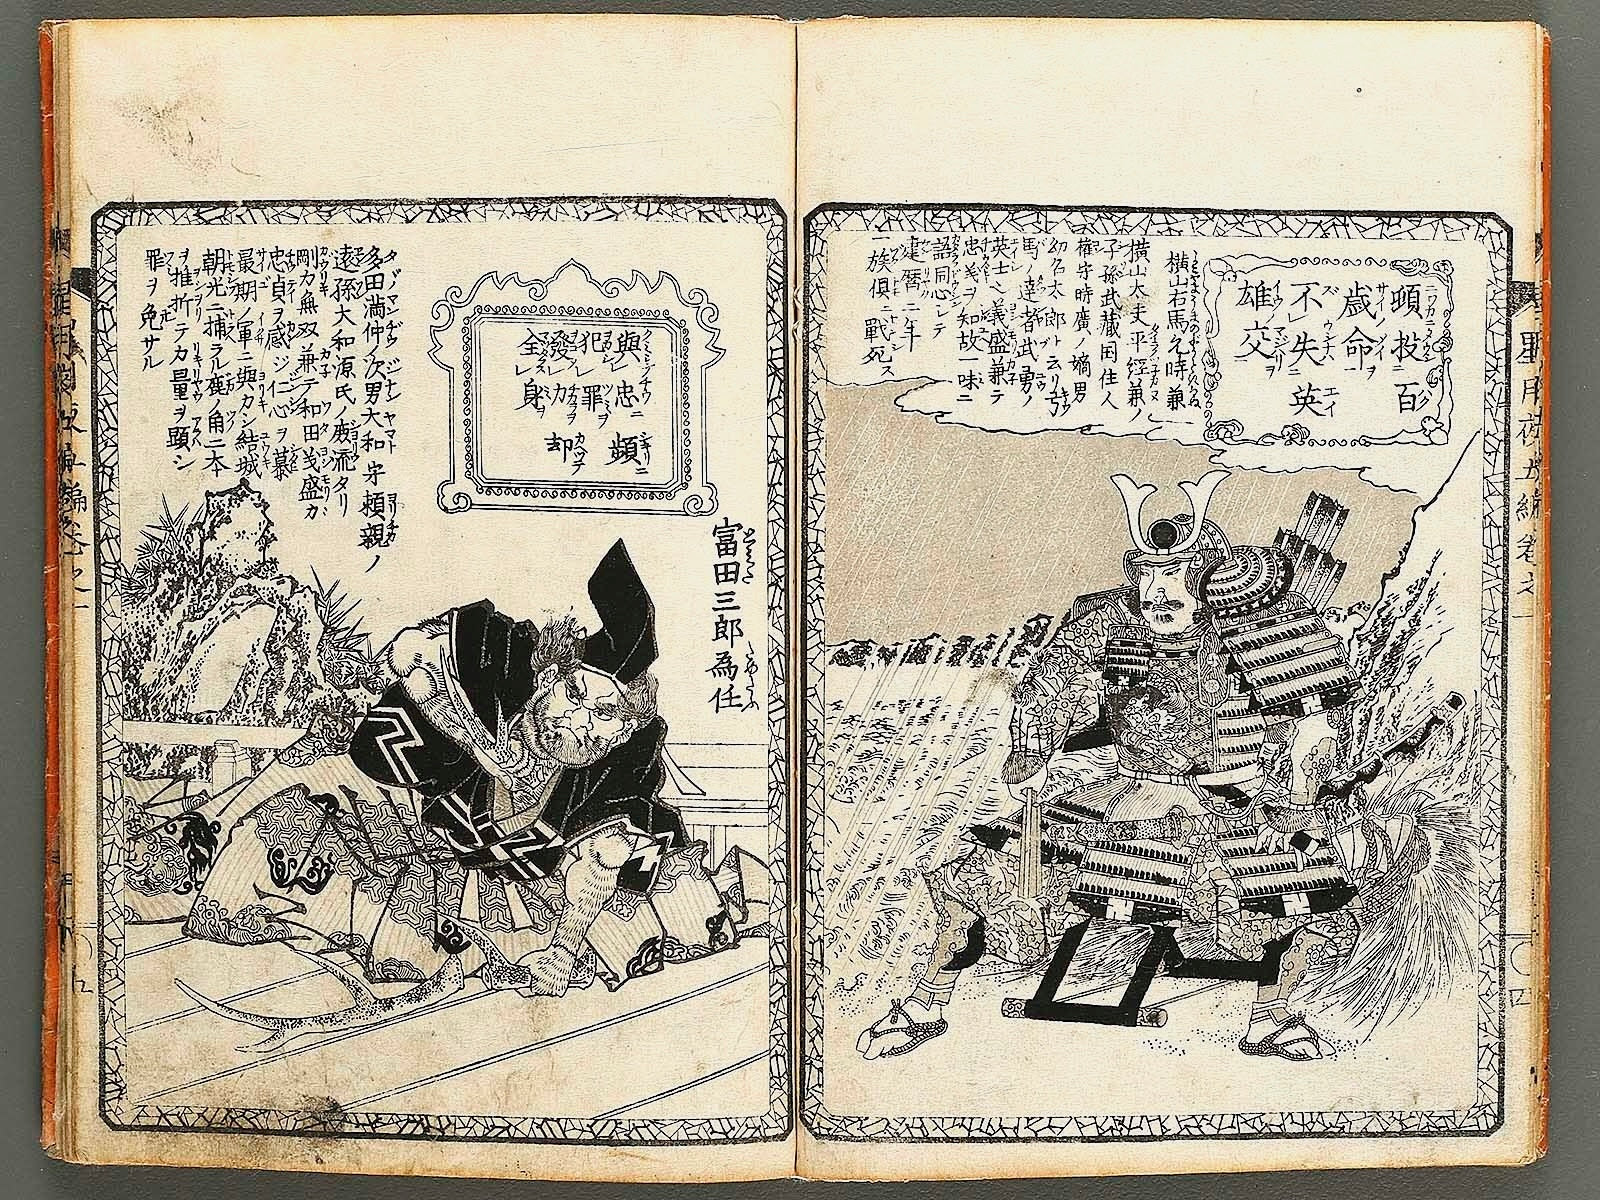 頓投百
歳命
不失英
雄交
横山右馬允時兼
横山大夫平經兼ノ
子孫武藏国住人
権守時廣ノ嫡男
幼名太郎ト云リ弓
馬ノ達者武勇ノ
英士ニ〆義盛兼テ
忠義ヲ知故一味ニ
語同心シテ
建暦三年
一族倶ニ戰死ス
與忠頻
犯罪
發力却
全身
富田三郎為任
多田満仲ノ次男大和守頼親ノ
遠孫大和源氏ノ庶流タリ
剛力無双兼テ和田義盛カ
忠貞ヲ感ジ仁心ヲ慕
最期ノ軍ニ與カシ結城
朝光ニ捕ラル鹿ノ角二本
ヲ推折テ力量ヲ顕シ
罪ヲ免サル
星月夜五編巻之一
四